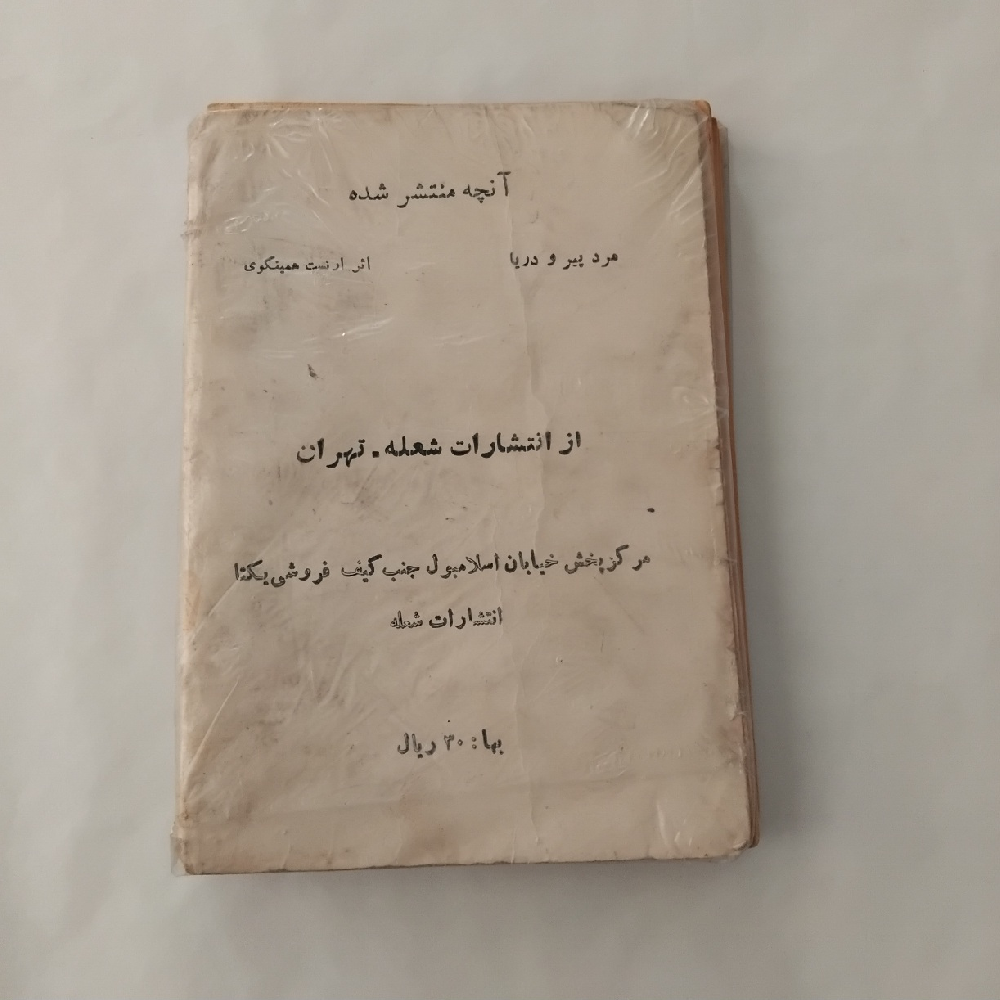 آنچه منتشر شده
مرد پیر و دریا اثر ارنست همینگوی
از انتشارات شعله . تهران
مرکز پخش خیابان اسلامبول جنب کیف فروشی یکتا
انتشارات شعله
بها : ۳۰ ریال